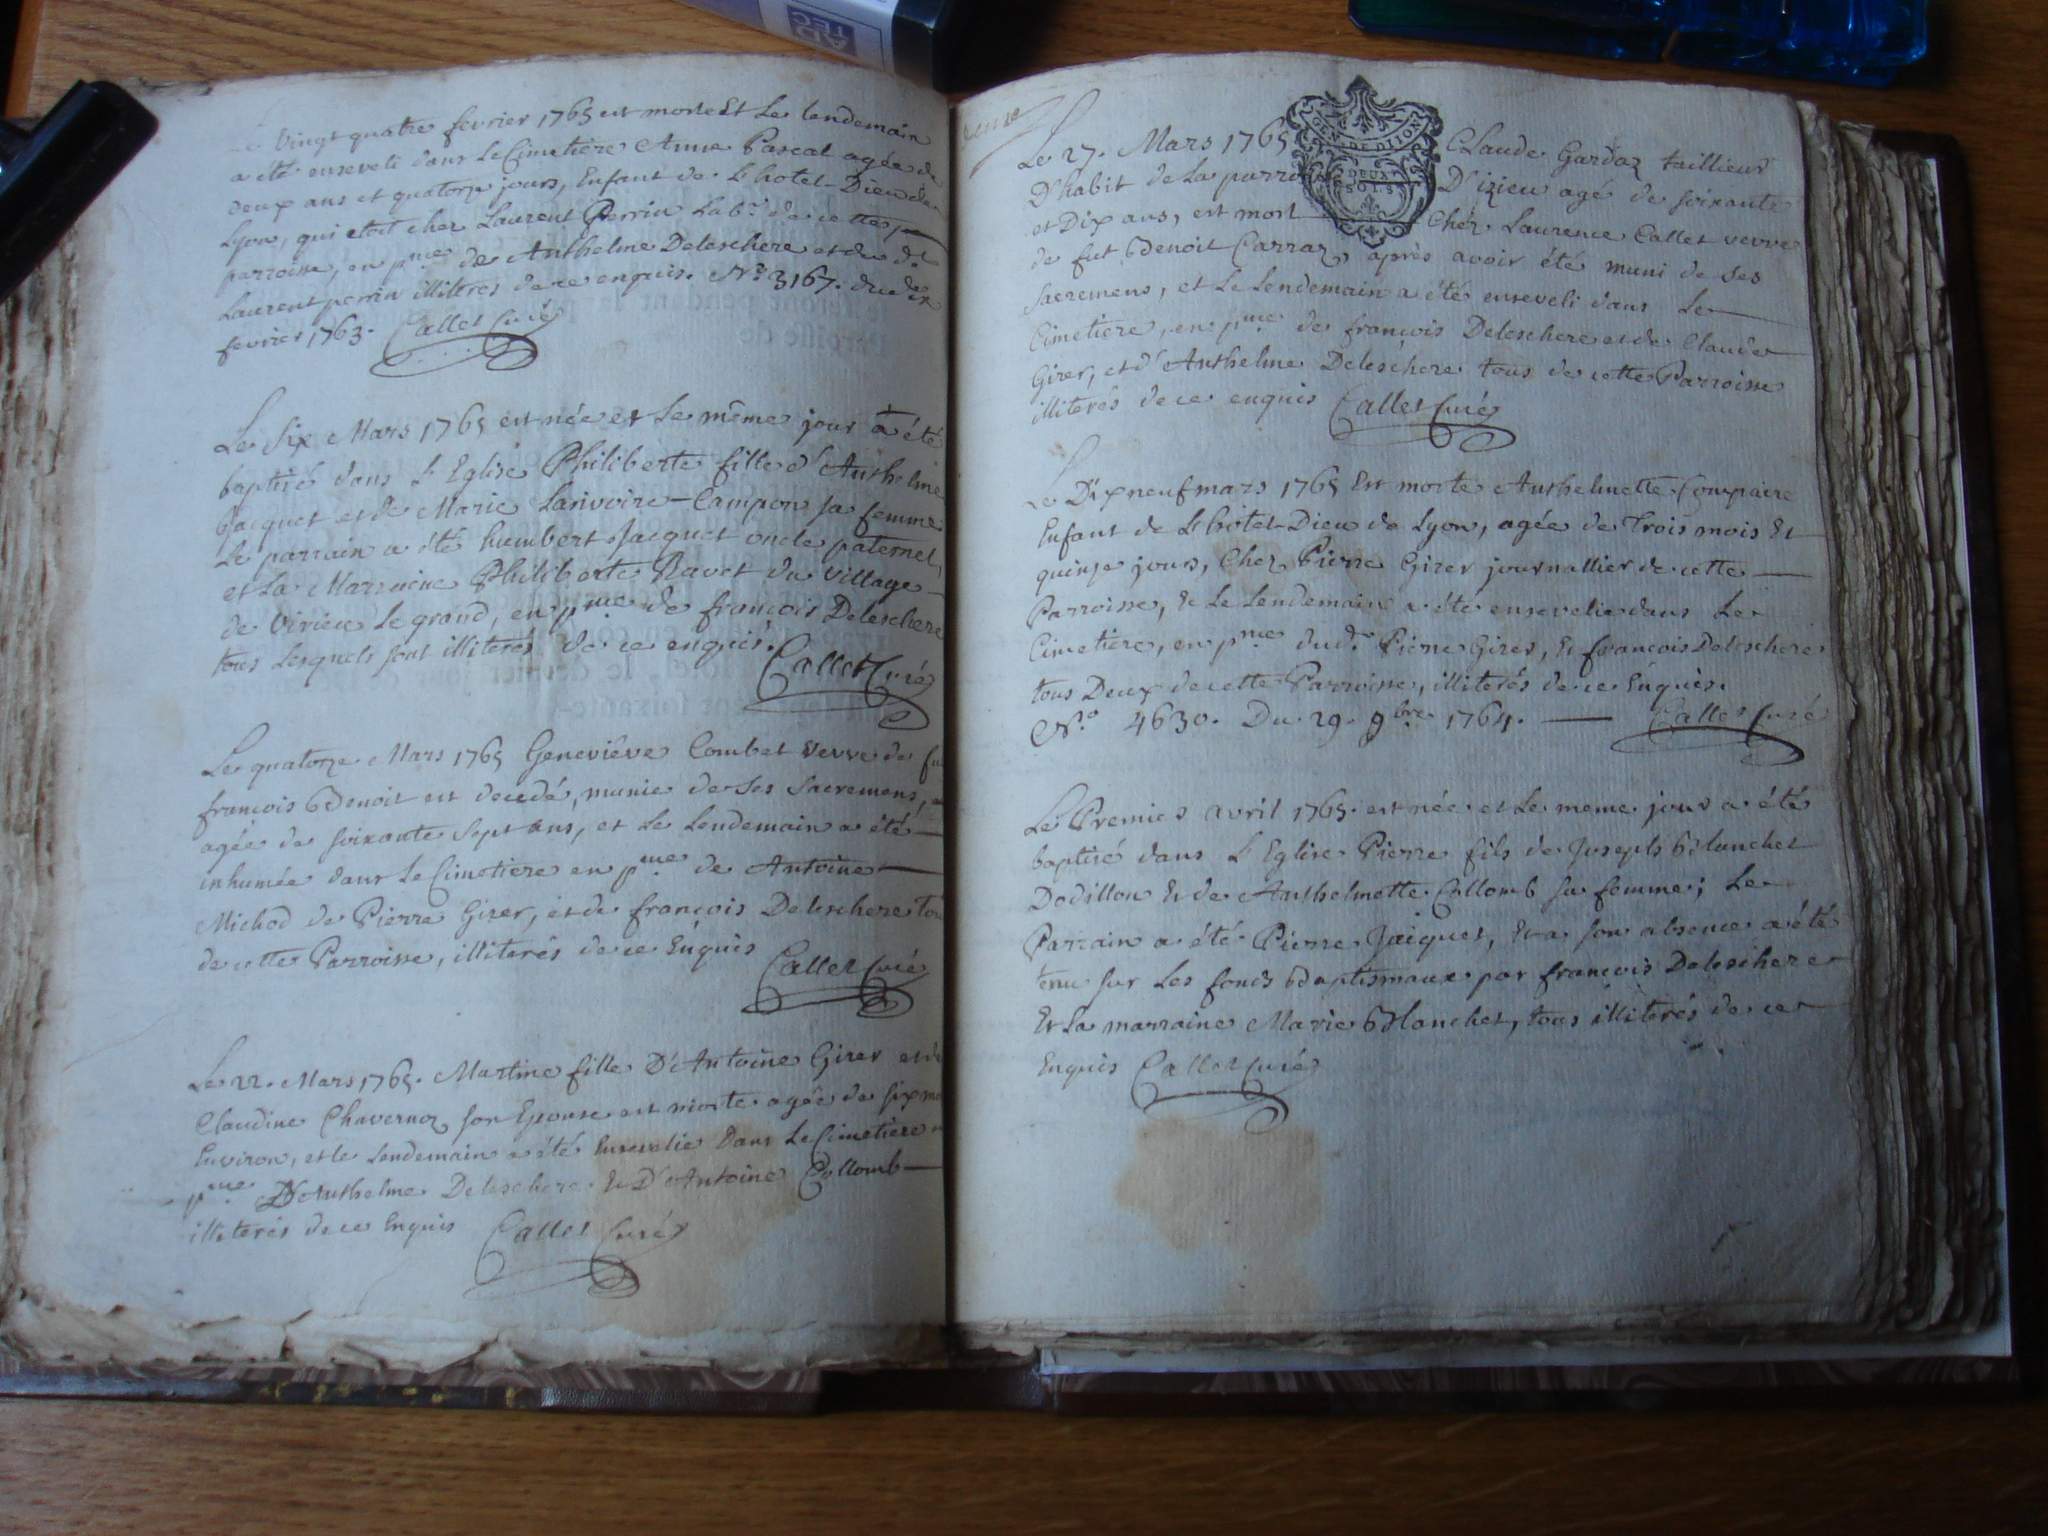 Le Vingt quatre fevrier 1765 est morte Et Le lendemain
a été enseveli dans Le Cimetiere Anne Pascal agée de
deux ans et quatorze jours, Enfant de L'hotel-Dieu de
Lyon, qui etoit chez Laurent Perrin Labr. de cette
parroisse, en pnce de Anthelme Deleschere et du dt
Laurent perrin illiteres de ce enquis. No. 3167. du dix
fevrier 1763. Callet Curé
Le Six Mars 1765 est née et Le même jour a été
baptisé dans L'Eglise Philiberte fille d'Anthelme
Jacquet et de Marie Larivoire-Campon sa femme
Le parrain a été humbert Jacquet oncle paternel,
et La Marraine Philiberte Ravet du village
de Virieu Le grand, en pnce de françois Deleschere
tous Lesquels sont illiterés de ce enquis.
Callet Curé
Le quatorze Mars 1765 Geneviêve Combet veuve de fu
françois Benoit est decedé, munie de Ses Sacremens,
agée de soixante Sept ans, et Le Lendemain a été
inhumée dans Le Cimetiere en pnce de Antoine
Michod de Pierre Girer, et de françois Deleschere tou
de cette Parroisse, illiterés de ce Enquis
Callet Curé
Le 22. Mars 1765. Martine fille D'Antoine Girer et de
Claudine Chavernoz son Epouse est morte agée de six mo
Environ, et le Lendemain a été Ensevelie Dans Le Cimetiere
pnce D'Anthelme Deleschere Et D'Antoine Collomb
illiterés de ce Enquis Callet Curé
AD
TEC
GEN. DE DIJON
DEUX
SOLS
Le 27. Mars 1765 CLaude Gardaz taillieur
D'habit de La parroisse D'izieu agé de soixante
et Dix ans, est mort Chéz Laurence Callet veuve
de fut Benoit Carraz, après avoir été muni de Ses
Sacremens, et Le Lendemain a été enseveli dans Le
Cimetiere, en pnce de françois Deleschere et de Claude
Girer, et d'Anthelme Deleschere tous de cette Parroisse
illiterés de ce enquis Callet Curé
Le Dixneuf mars 1765 Est morte Anthelmette Compaire
Enfant de L'hôtel-Dieu de Lyon, agée de Trois mois Et
quinze jours, Chez Pierre Girer journallier de cette
Parroisse, & Le Lendemain a été ensevelie dans Le
Cimetiere, en pnce du d. Pierre Girer, & françois Deleschere
tous Deux de cette Parroisse, illiterés de ce Enquis.
No. 4630. Du 29. 9bre 1764. Callet Curé
Le Premier avril 1765. est née et Le meme jour a été
baptisé dans L'Eglise Pierre fils de Joseph Blanchet
Dodillon & de Anthelmette Collomb sa femme; Le
Parrain a été Pierre Jaiquet, Et a son absence a été
tenu sur Les fonds Baptismaux par françois Deleschere
Et La marraine Marie Blanchet, tous illiterés de ce
Enquis Callet Curé